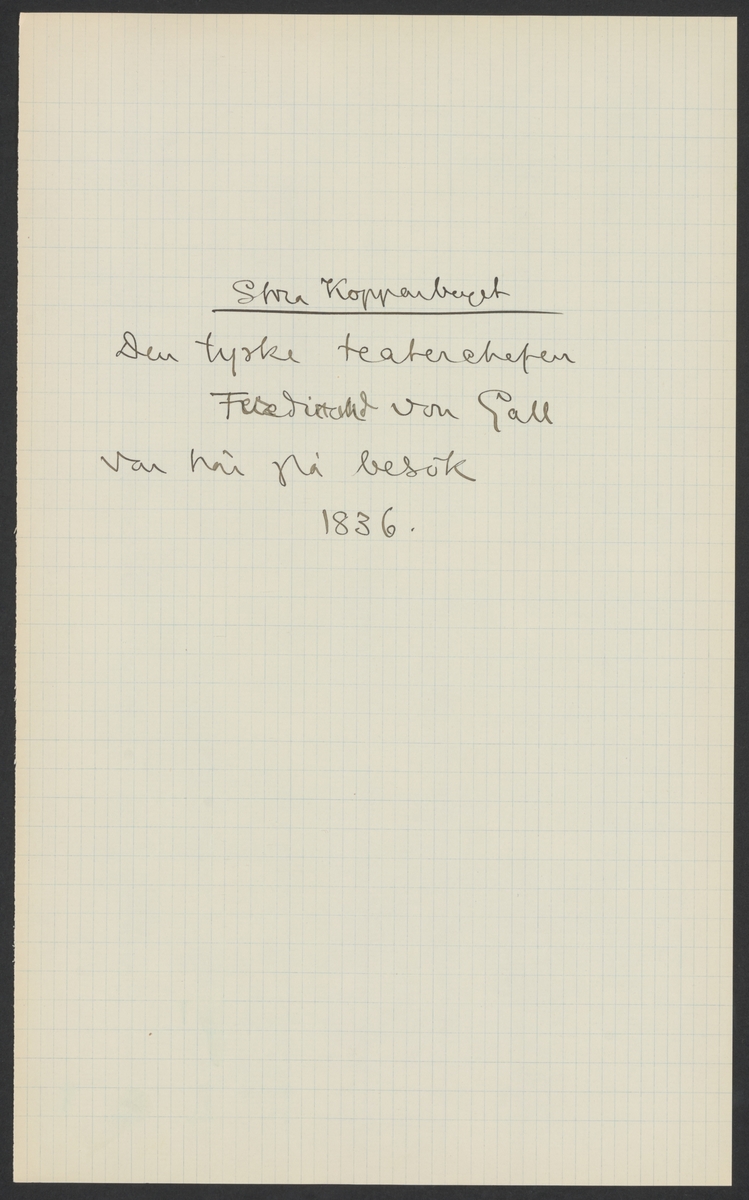 Stora Kopparberget
Den tyske teaterchefen
Ferdinand von Gall
var här på besök
1836.